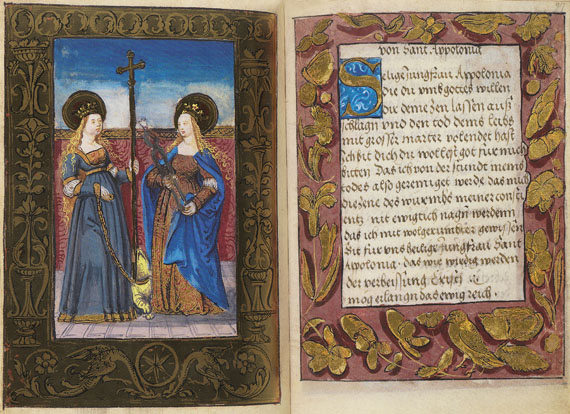 von Sant Appolonia
Selige Jungfraü Appolonia
die dü vmb gottes willen
dir deine zen lassen aüß
schlagen vnd den tod deins leibs
mit grosser marter volendet hast
Ich bit dich dü wollest got für mich
bitten Das ich von der stündt meins
todes also gereiniget werde das mich
die zene des würmbs meiner consci
nit ewigtich nagen werdenn
das ich mit
Bit für vns heilige Jüngfraü Sant
Appolonia. das wir wirdig werden
der verheissüng Cristi.
mög erlangn das ewig reich.